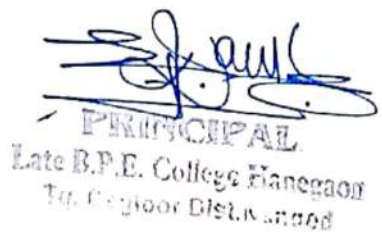 PRINCIPAL
Late B.P.E. College Hanegaon
Tq. Degloor Dist. Nanded